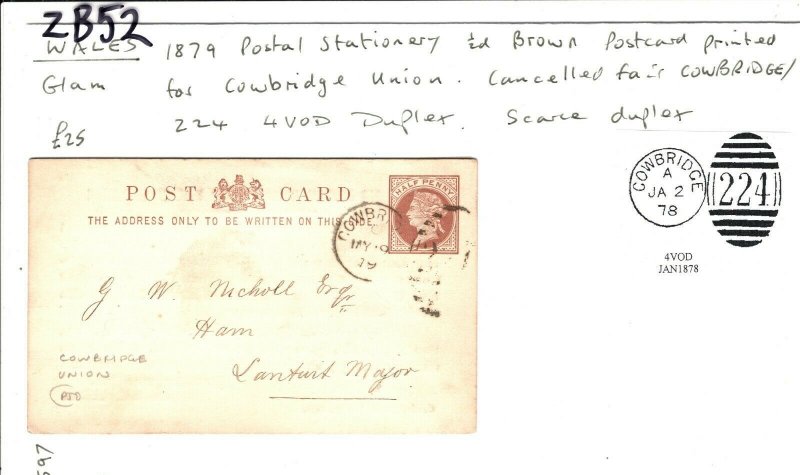 ZB52
WALES 1879 Postal Stationery ½d Brown Postcard printed
Glam for Cowbridge Union. Cancelled fair COWBRIDGE/
£25 224 4VOD Duplex. Scarce duplex
COWBRIDGE
A
JA 2
78
224
4VOD
JAN1878
POST CARD
HALF PENNY
THE ADDRESS ONLY TO BE WRITTEN ON THIS SIDE.
COWBR
MY 9
79
G. W. Nicholl Esqr
Ham
Lantwit Major
COWBRIDGE
UNION
PTO
597